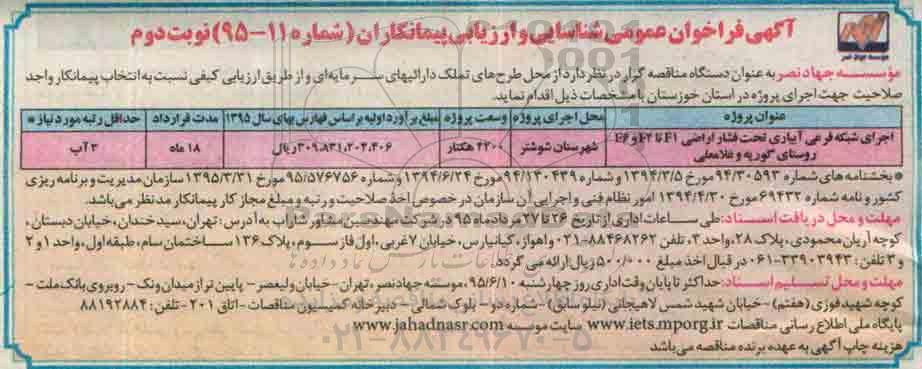 آگهی فراخوان عمومی شناسایی و ارزیابی پیمانکاران (شماره ۱۱-۹۵) نوبت دوم
موسسه جهاد نصر
مؤسسه جهاد نصر به عنوان دستگاه مناقصه گزار در نظر دارد از محل طرح های تملک دارائیهای سرمایه ای و از طریق ارزیابی کیفی نسبت به انتخاب پیمانکار واجد
صلاحیت جهت اجرای پروژه در استان خوزستان با مشخصات ذیل اقدام نماید.
عنوان پروژه محل اجرای پروژه وسعت پروژه مبلغ برآورد اولیه بر اساس فهارس بهای سال ۱۳۹۵ مدت قرارداد حداقل رتبه مورد نیاز *
اجرای شبکه فرعی آبیاری تحت فشار اراضی F1 تا F4 و E6 شهرستان شوشتر ۴۲۰۰ هکتار ۳۰۹،۸۳۱،۲۰۲،۴۰۶ ریال ۱۸ ماه ۳ آب
روستای گوریه و غلامعلی
* بخشنامه های شماره ۹۴/۳۰۵۹۳ مورخ ۱۳۹۴/۳/۵ و شماره ۹۴/۱۴۰۴۳۹ مورخ ۱۳۹۴/۶/۲۴ و شماره ۹۵/۵۷۶۷۵۶ مورخ ۱۳۹۵/۳/۳۱ سازمان مدیریت و برنامه ریزی
کشور و نامه شماره ۶۹۴۳۲ مورخ ۱۳۹۴/۴/۳۰ امور نظام فنی و اجرایی آن سازمان در خصوص اخذ صلاحیت و رتبه و مبلغ مجاز کار پیمانکار مد نظر می باشد.
مهلت و محل دریافت اسناد: طی ساعات اداری از تاریخ ۲۶ تا ۲۷ مرداد ماه ۹۵ در شرکت مهندسین مشاور شاراب به آدرس: تهران، سید خندان، خیابان دبستان،
کوچه آریان محمودی، پلاک ۲۸، واحد ۳، تلفن ۸۸۴۶۸۲۶۲-۰۲۱ و اهواز، کیانپارس، خیابان ۷ غربی، اول فاز سوم، پلاک ۱۳۶ ساختمان سام، طبقه اول، واحد ۱ و ۲
و ۳ تلفن: ۳۳۹۰۳۹۴۳-۰۶۱ در قبال اخذ مبلغ ۵۰۰/۰۰۰ ریال ارائه می گردد.
مهلت و محل تسلیم اسناد: حداکثر تا پایان وقت اداری روز چهارشنبه ۹۵/۶/۱۰، موسسه جهاد نصر، تهران - خیابان ولیعصر - پایین تر از میدان ونک - روبروی بانک ملت -
کوچه شهید فوزی (هفتم) - خیابان شهید شمس لاهیجانی (نیلو سابق) - شماره دو - بلوک شمالی - دبیرخانه کمیسیون مناقصات - اتاق ۲۰۱ - تلفن: ۸۸۱۹۲۸۸۴
پایگاه ملی اطلاع رسانی مناقصات www.iets.mporg.ir سایت موسسه www.jahadnasr.com
هزینه چاپ آگهی به عهده برنده مناقصه می باشد
۰۲۱-۸۸۳۴۹۶۷۰-۵